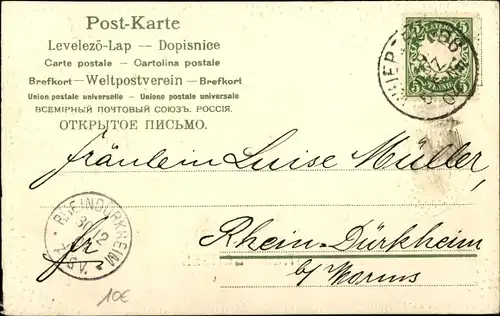 Post-Karte
Levelező-Lap — Dopisnice
Carte postale — Cartolina postale
Brefkort—Weltpostverein—Brefkort
Union postale universelle — Unione postale universale
ВСЕМІРНЫЙ ПОЧТОВЫЙ СОЮЗЪ. РОССІЯ.
ОТКРЫТОЕ ПИСЬМО.
5 5
5 5
Fräulein Luise Müller,
RHEINDÜRKHEIM
30 12
V.
Rhein-Dürkheim
b/ Worms
10€